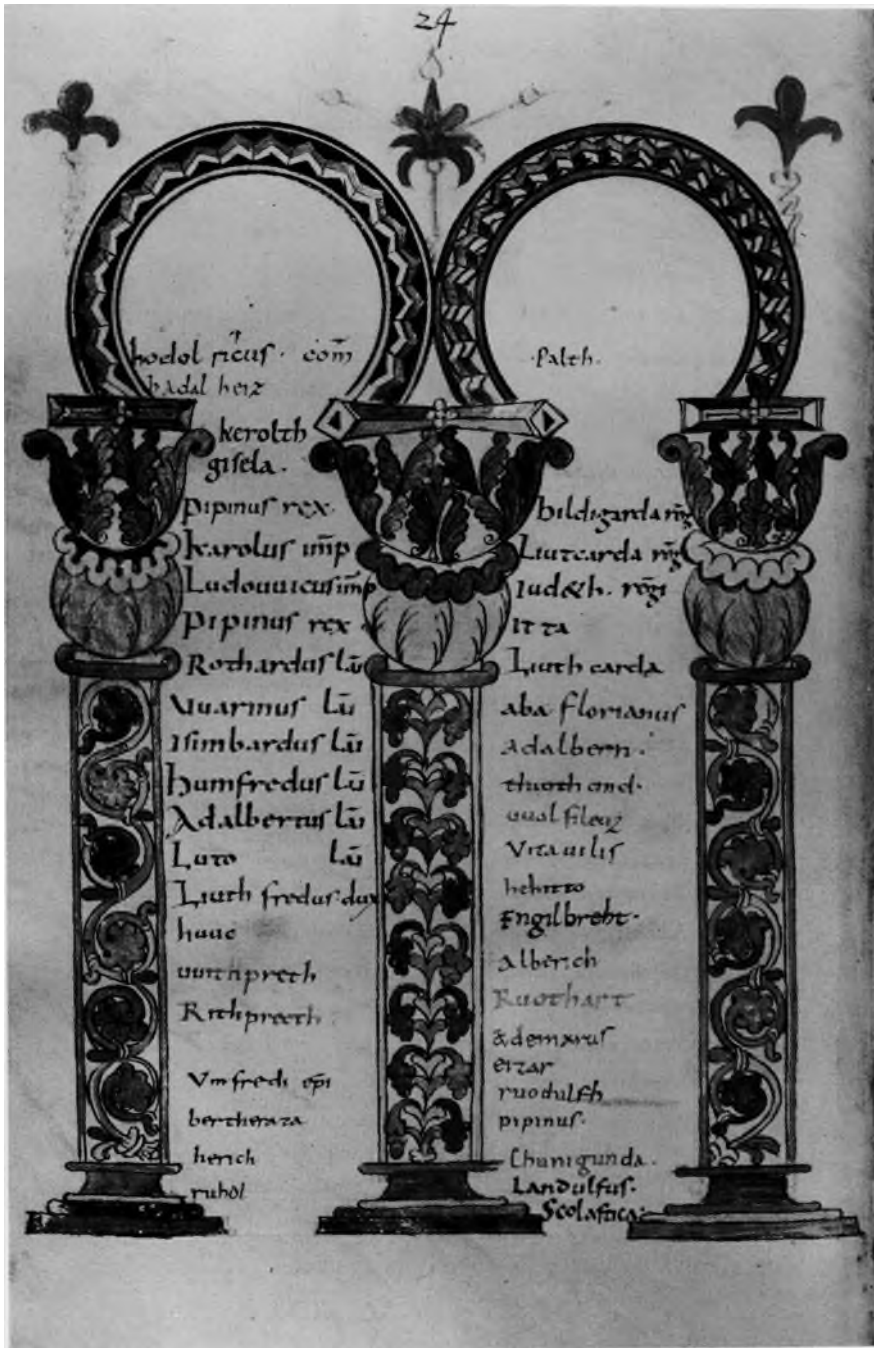 24
hodolricus · com̄
hadal herz
kerolth
gisela ·
pipinus rex ·
karolus im̄p
Ludouuicus im̄p
Pipinus rex
Rothardus lāi
Uuarinus lāi
Isimbardus lāi
humfredus lāi
Adalbertus lāi
Luto lāi
Liuth fredus · dux
huuc
uuithpreth
Rithpreth
Vmfredi ep̄i
herich
ruhol
· palth ·
hildigarda rēg
Liutcarda rēg
Iud&h · rēgi
Itta
Liuth carda
aba · florianus
Adalbern ·
Vitauilis
hehitto
Engilbreht ·
Alberich
Ruothart
&demarus
eizar
ruodulfh
pipinus ·
Chunigunda ·
Landulfus ·
Scolastica ·